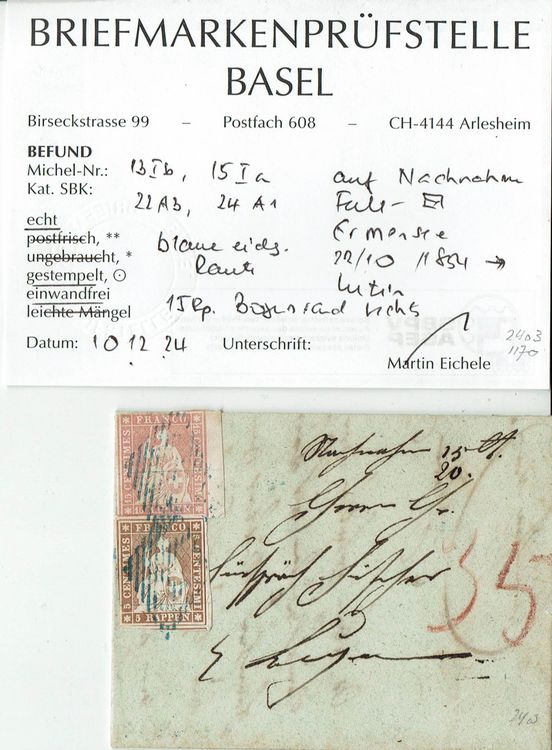 BRIEFMARKENPRÜFSTELLE
BASEL
Birseckstrasse 99 – Postfach 608 – CH-4144 Arlesheim
BEFUND
Michel-Nr.: 13 I b, 15 I a
Kat. SBK: 22 A3, 24 A1
echt
postfrisch, **
ungebraucht, *
gestempelt, ⊙
einwandfrei
leichte Mängel
blaue eidg.
Raute
15 Rp. Bogenrand rechts
auf Nachnahme
Falt-
Ermensee
22/10 1854 →
Luzern
Datum: 10 12 24 Unterschrift:
Martin Eichele
2403
1170
FRANCO
15 CENTIMES
FRANCO
5 CENTIMES
5 RAPPEN
Nachnahme 15
20.
Herrn
Luzern
35
2403